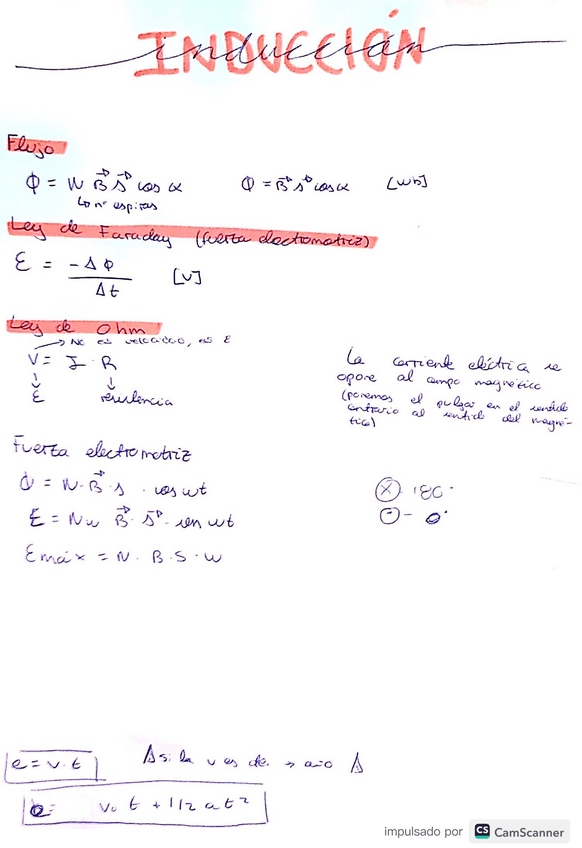 INDUCCIÓN
inducción
Flujo
Φ = N B⃗ S⃗ cos α    Φ = B⃗ S⃗ cos α    [Wb]
↳ nº espiras
Ley de Faraday (fuerza electromotriz)
ε = -Δφ / Δt    [V]
Ley de Ohm
→ No es velocidad, es ε
V = I · R
↓ ↓
ε resistencia
La corriente eléctrica se
opone al campo magnético
(ponemos el pulgar en el sentido
contrario al sentido del magné-
tico)
Fuerza electromotriz
Φ = N · B⃗ · S · cos wt
ε = N w B⃗ · S⃗ · sen wt
ⓧ 180°
⊙ - 0°
εmáx = N · B · S · w
e = v · t    Δ si la v es de → Δ
e = v₀ t + 1/2 a t²
impulsado por CS CamScanner